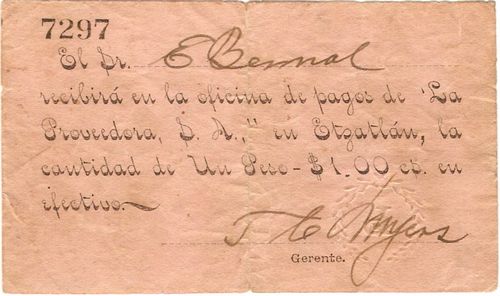 7297
El Sr. E Bernal
recibirá en la oficina de pagos de "La
Proveedora, S. A.," en Etzatlán, la
cantidad de Un Peso-$1.00 cs. en
efectivo.
T C Myers
Gerente.